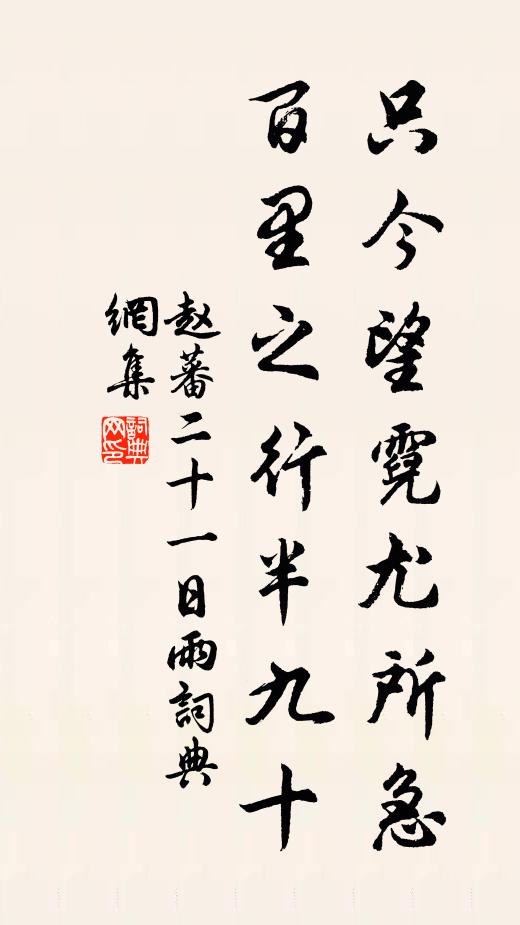 只今望霓尤所急
百里之行半九十
赵蕃二十一日雨詞典
網集
詞典網印